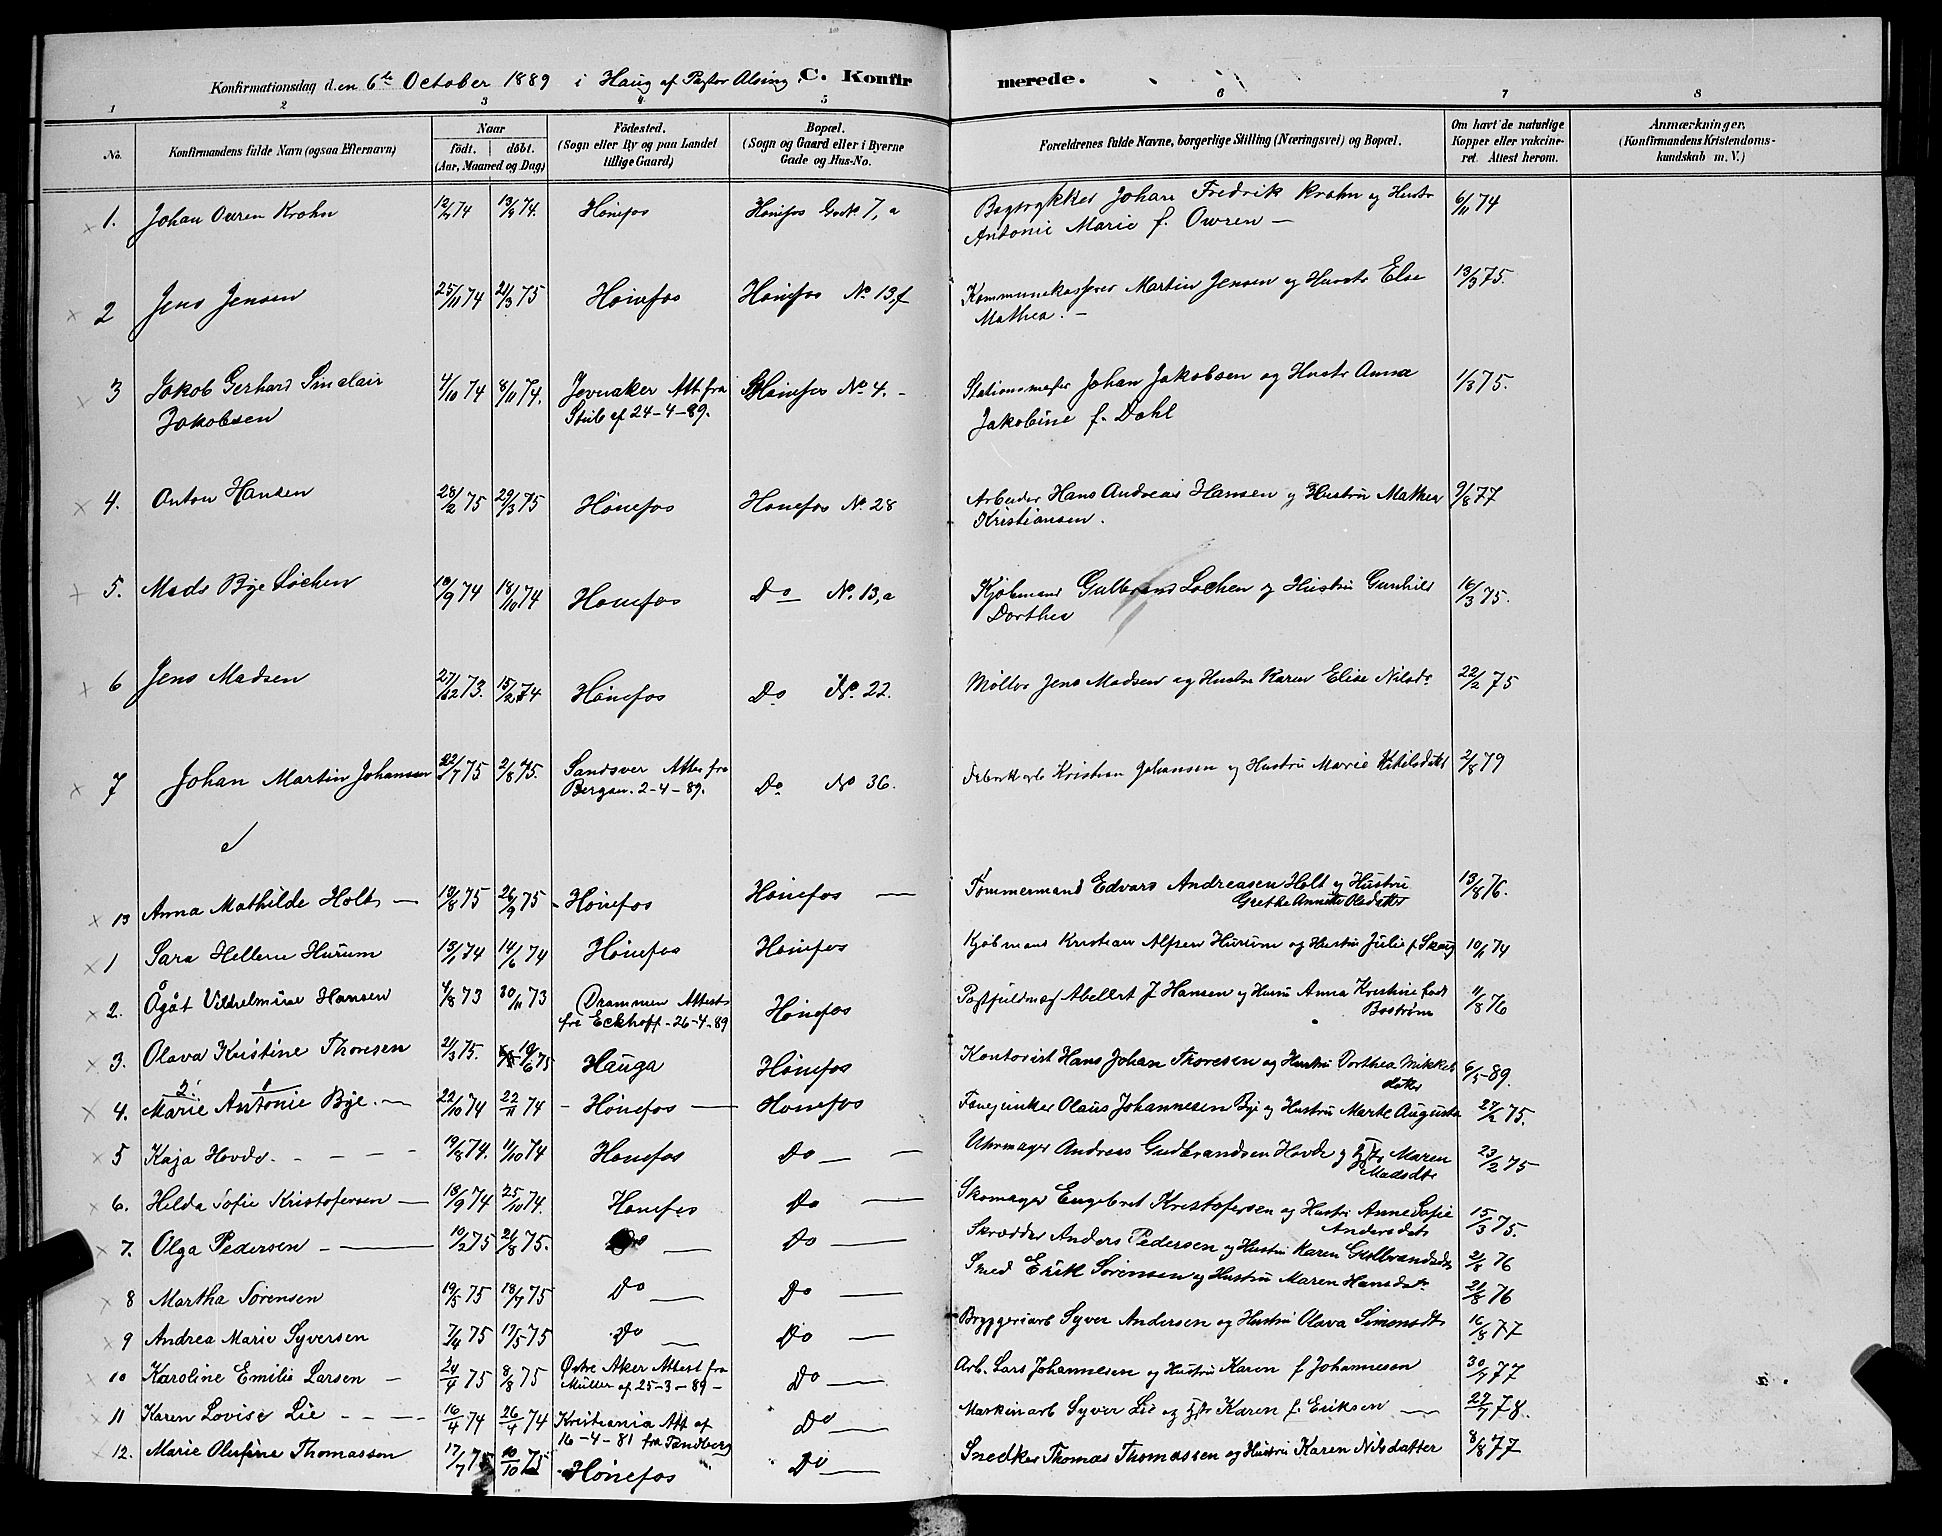 Konfirmationsdag den 6te October 1889 i Haug af Pastor Alsing C. Konfirmerede.
1 2 3 4 5 6 7 8
No. Konfirmandens fulde Navn (ogsaa Efternavn) Naar födt. döbt. (Aar, Maaned og Dag) Födested. (Sogn eller By og paa Landet tillige Gaard) Bopæl. (Sogn og Gaard eller i Byerne Gade og Hus-No. Forældrenes fulde Navne, borgerlige Stilling (Næringsvei) og Bopæl. Om havt de naturlige Kopper eller vakcineret. Attest herom. Anmærkninger, (Konfirmandens Kristendomskundskab m. V.)
1. Johan Owren Krohn 74 13/9 74. Hönefos Hönefos No. 7, a Bogtrykker Johan Fredrik Krohn og Hustr 6/11 74
Antonie Marie f. Owren —
2 Jens Jensen 25/11 74 21/3 75 Hönefos Hönefos No 13,f Kommunekasserer Martin Jensen og Hustr Else 13/3 75.
Mathea. -
3 Jakob Gerhard Sinclair 4/10 74 8/11 74. Jevnaker Att. fra Hönefos No 4. - Stationsmester Johan Jakobsen og Hustr Anna 1/3 75.
Jakobsen Stub af 24-4-89. Jakobine f. Dahl
4. Anton Hansen 28/2 75 29/3 75 Hönefos Hönefos No 28 Arbeider Hans Andreas Hansen og Hustru Mathea 9/8 77
Kristiansen.
5. Mads Bye Löchen 13/9 74 18/10 74 Hönefos Do No. 13,a Kjöbmand Gulbrand Lochen og Hustru Gunhild 16/3 75.
Dorthea
6 Jens Madsen 27/12 73. 15/2 74 Hönefos Do No. 22. Möller Jens Madsen og Hustru Karen Elise Nilsdr 22/2 75
7 Johan Martin Johansen 22/7 75 2/8 75. Sandsver Attes fra Do No 36. Kristian Johansen og Hustru Marie Kitilsdatr 2/8 79
Bergan. 2-4-89.
13 Anna Mathilde Holt — 13/8 75 26/9 75 - Hönefos Hönefos — Tömmermand Edvard Andreasen Holt og Hustru 13/8 76.
Grethe Annette Olsdatter
1 Sara Hellene Hurum 13/1 74 14/6 74 Hönefos Hönefos Kjöbmand Kristian Alfsen Hurum og Hustru Julie f. Skaug 10/11 74
2. Ågåt Vilhelmine Hansen 4/8 73 30/11 73 Drammen Attest Hönefos Abellert J Hansen og Hustru Anna Kristine född 11/8 76
fra Eckhoff - 26-4-89 Boström
3. Olava Kristine Thoresen 21/3 75. 10/6 75 Hauga Hönefos Kontorist Hans Johan Thoresen og Hustru Dorthea Mikkels 6/5 -89.
datter
2. 1
4. Marie Antonie Bye. — 22/10 74 22/11 74 - Hönefos — Hönefos Fanejunker Olaus Johannesen Bye og Hustru Marte Augusta 27/2 75.
5 Kaja Hovde. - - - - 19/8 74. 11/10 74 Hönefos Do — - Uhrmager Andreas Gudbrandsen Hovde og Hstr Maren 23/2 75
Madsdtr
6. Hilda Sofie Kristofersen — 13/9 74 25/10 74. Hönefos Do — Skomager Engebret Kristofersen og Hustru Anne Sofie 15/3 75.
Andersdatr
7. Olga Pedersen — 10/2 75 21/8 75. Do — Do — Skrædder Anders Pedersen og Hustru Karen Gulbrandsdtr 2/8 76
8 Martha Sörensen 19/5 75 18/7 75 Do — Do — Smed Erik Sörensen og Hustru Maren Hansdatr 21/8 76
9 Andrea Marie Syversen 7/4 75 17/5 75 Do — Do — Bryggeriarb Syver Andersen og Hustru Olava Simensdtr 16/8 77
10 Karoline Emilie Larsen - 24/4 75 8/8 75 Östre Aker Attest fra Do — Arb. Lars Johannesen og Hustru Karen f Johannesen 30/7 77
Müller af 25-3-89 -
11 Karen Lovise Lie - - - 16/4 74 26/4 74 Kristiania Att af Do — Maskinarb Syver Lie og Hstr Karen f. Eriksen — 27/7 78.
16-4-81 fra Tandberg
12. Marie Olufine Thomassen 17/7 75 10/10 75 Hönefos Do — Snedker Thomas Thomassen og Hustru Karen Nilsdatter 8/8 77